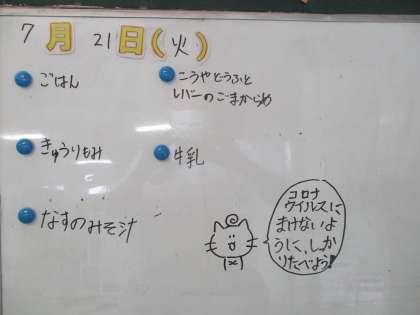 7月21日(火)
ごはん
こうやどうふと
レバーのごまがらめ
きゅうりもみ
牛乳
なすのみそ汁
コロナ
ウイルスに
まけないよ
うに、しっか
りたべよう!